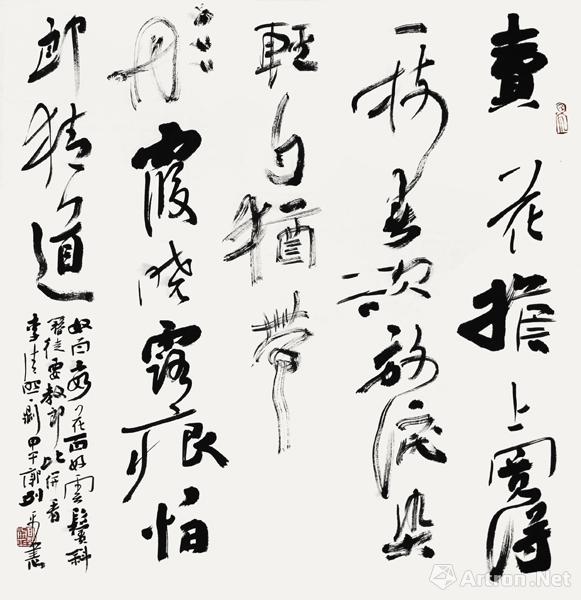 賣花擔上買得
一枝春欲放淚染
輕勻猶帶
彤霞曉露痕怕
郎猜道
奴面不如花面好雲鬢斜
簪徒要教郎比併看
李清照詞甲午郭列平書
Artron.Net